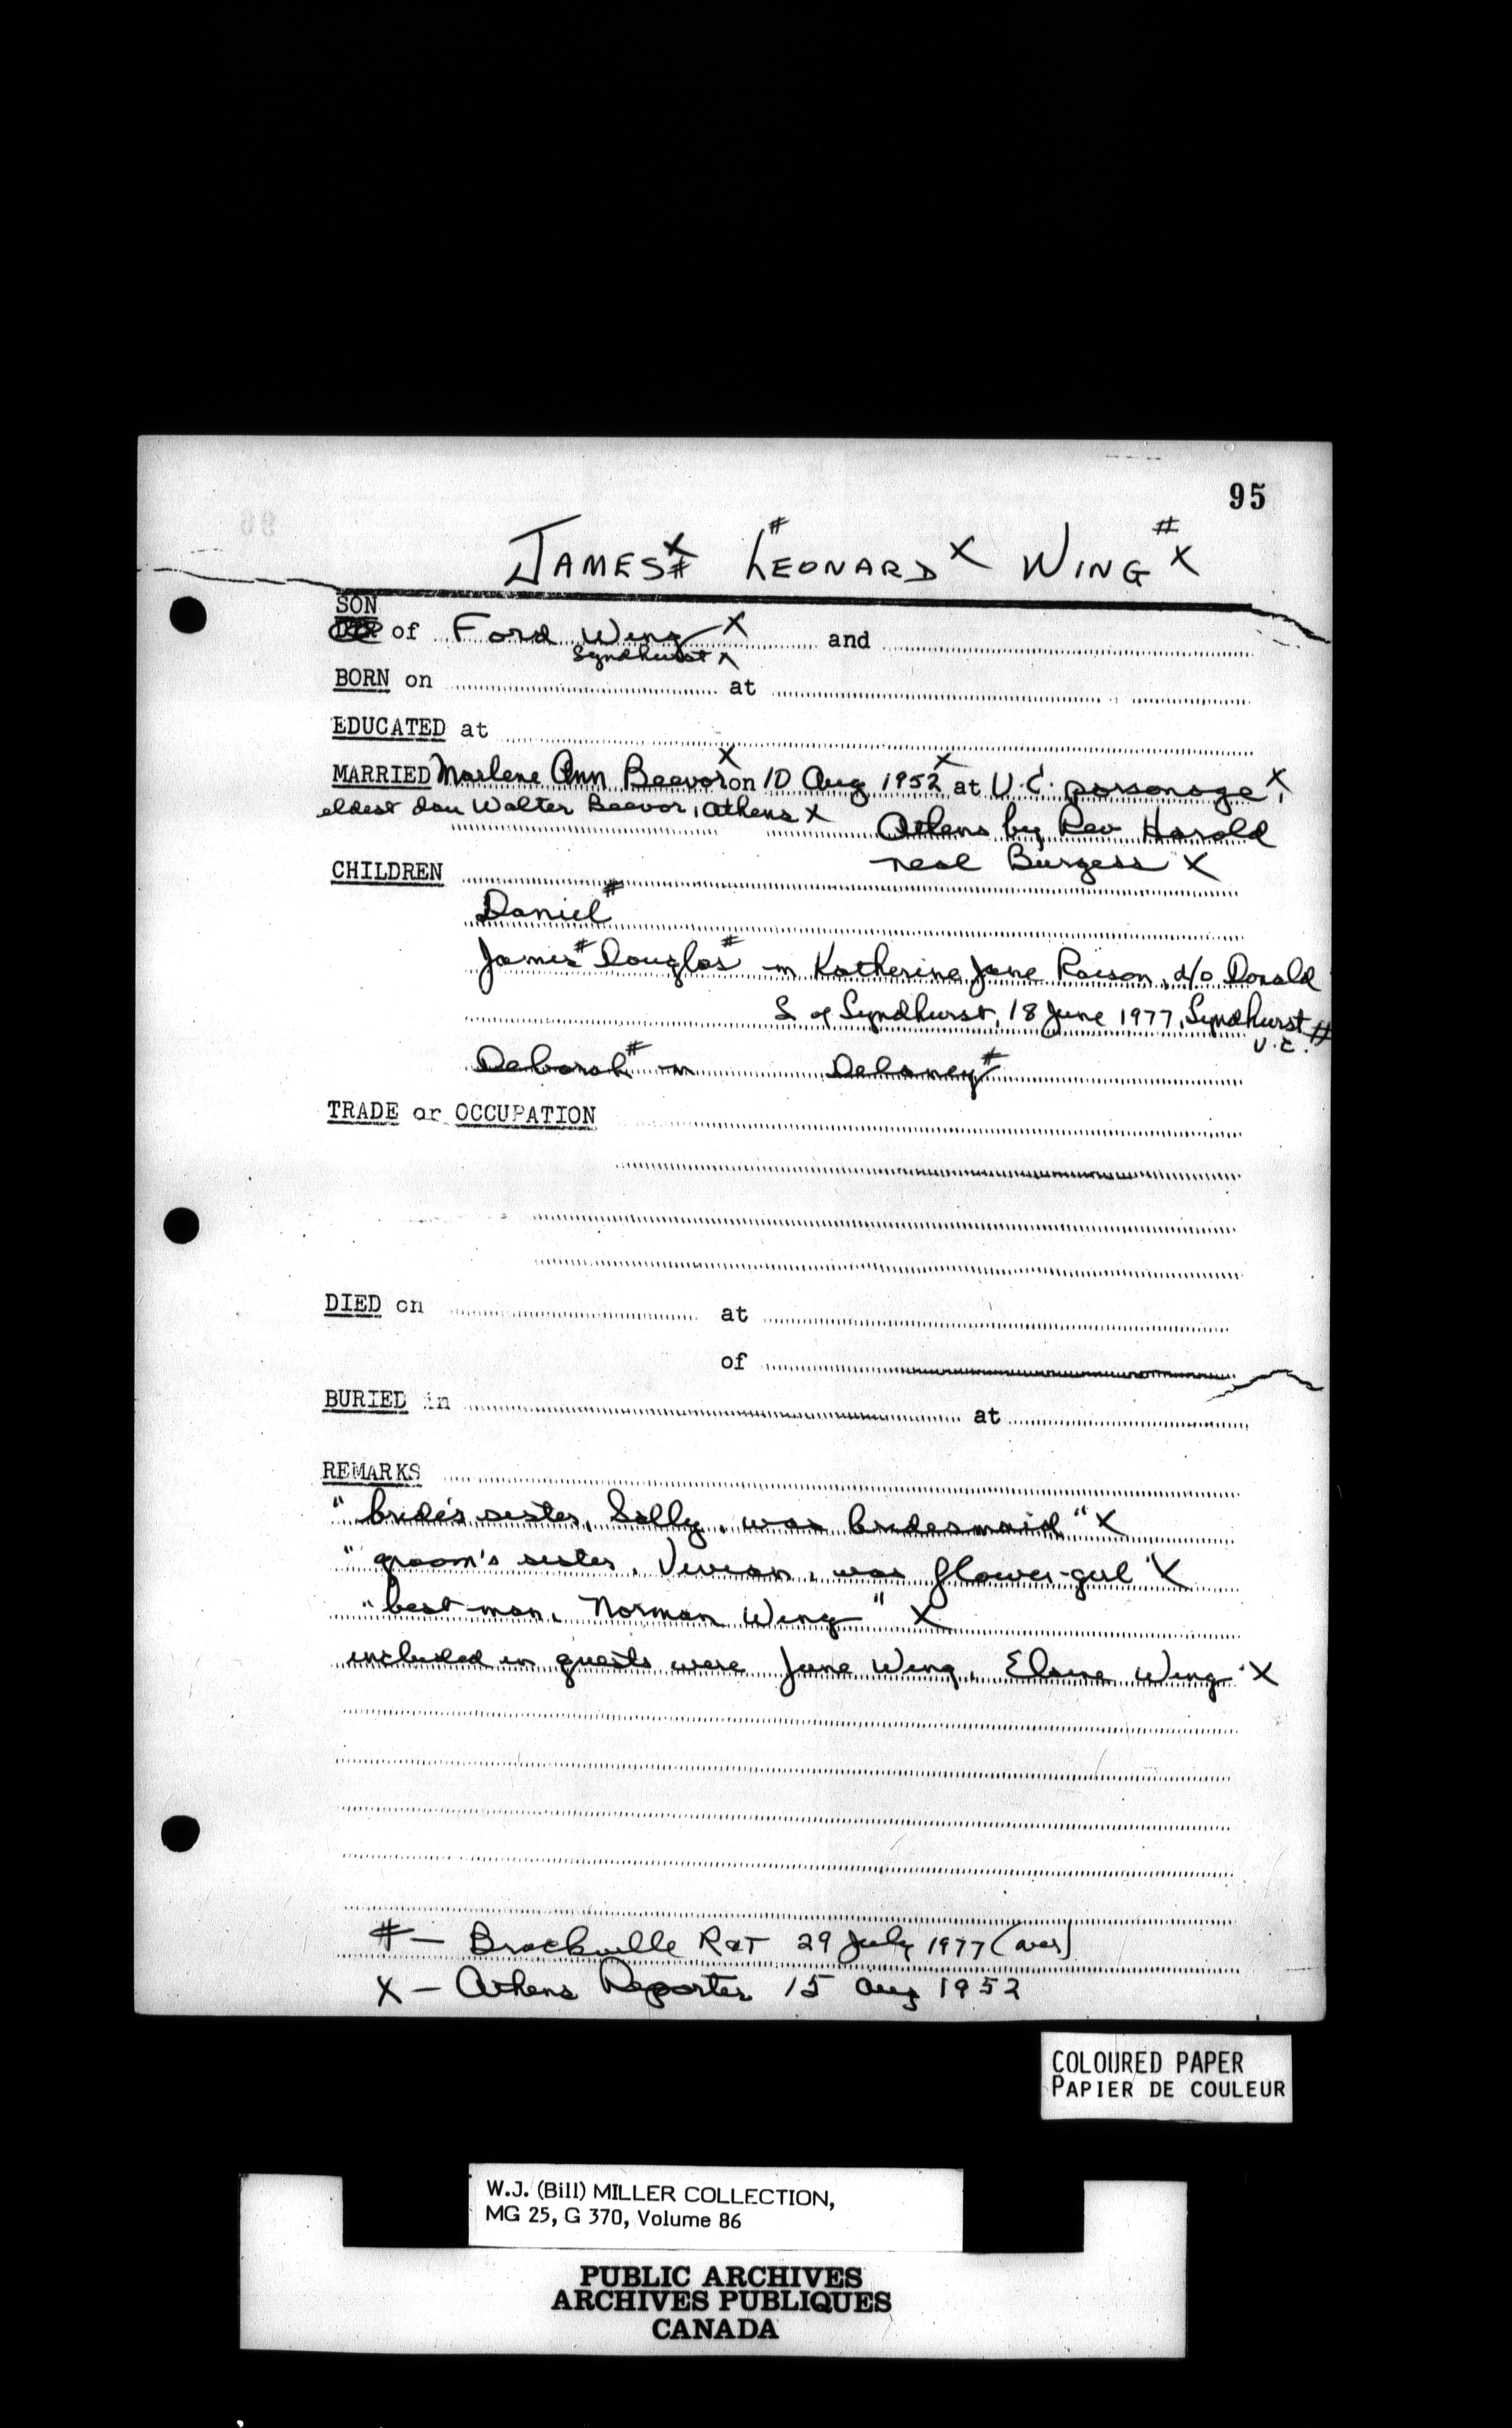 95
JAMES X# LEONARD # X WING # X
SON
of Ford Wing X and
Lyndhurst X
BORN on at
EDUCATED at
MARRIED Marlene Ann Beevor X on 10 Aug 1952 X at U.C. parsonage X,
eldest dau Walter Beevor, Athens X Athens by Rev Harold
Neal Burgess X
CHILDREN
Daniel #
James # Douglas # m Katherine Jane Raison, d/o Donald
S. of Lyndhurst, 18 June 1977, Lyndhurst #
U.C.
Deborah # m Delaney #
TRADE or OCCUPATION
DIED on at
of
BURIED in at
REMARKS
"bride's sister, Sally, was bridesmaid" X
"groom's sister, Vivian, was flower-girl" X
"best-man, Norman Wing" X
included in guests were June Wing, Elaine Wing X
# — Brockville R&T 29 July 1977 (over)
X — Athens Reporter 15 Aug 1952
COLOURED PAPER
PAPIER DE COULEUR
W.J. (Bill) MILLER COLLECTION,
MG 25, G 370, Volume 86
PUBLIC ARCHIVES
ARCHIVES PUBLIQUES
CANADA